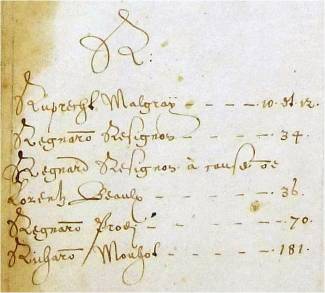 R:
Ruprecht Malgray - - - - 10. 31. 12.
Regnard Resignon - - - - 34.
Regnard Resignon à cause de
Lorentz Beaulx - - - - 36.
Regnard - - - - 70.
Richard Mouhot - - - - 181.